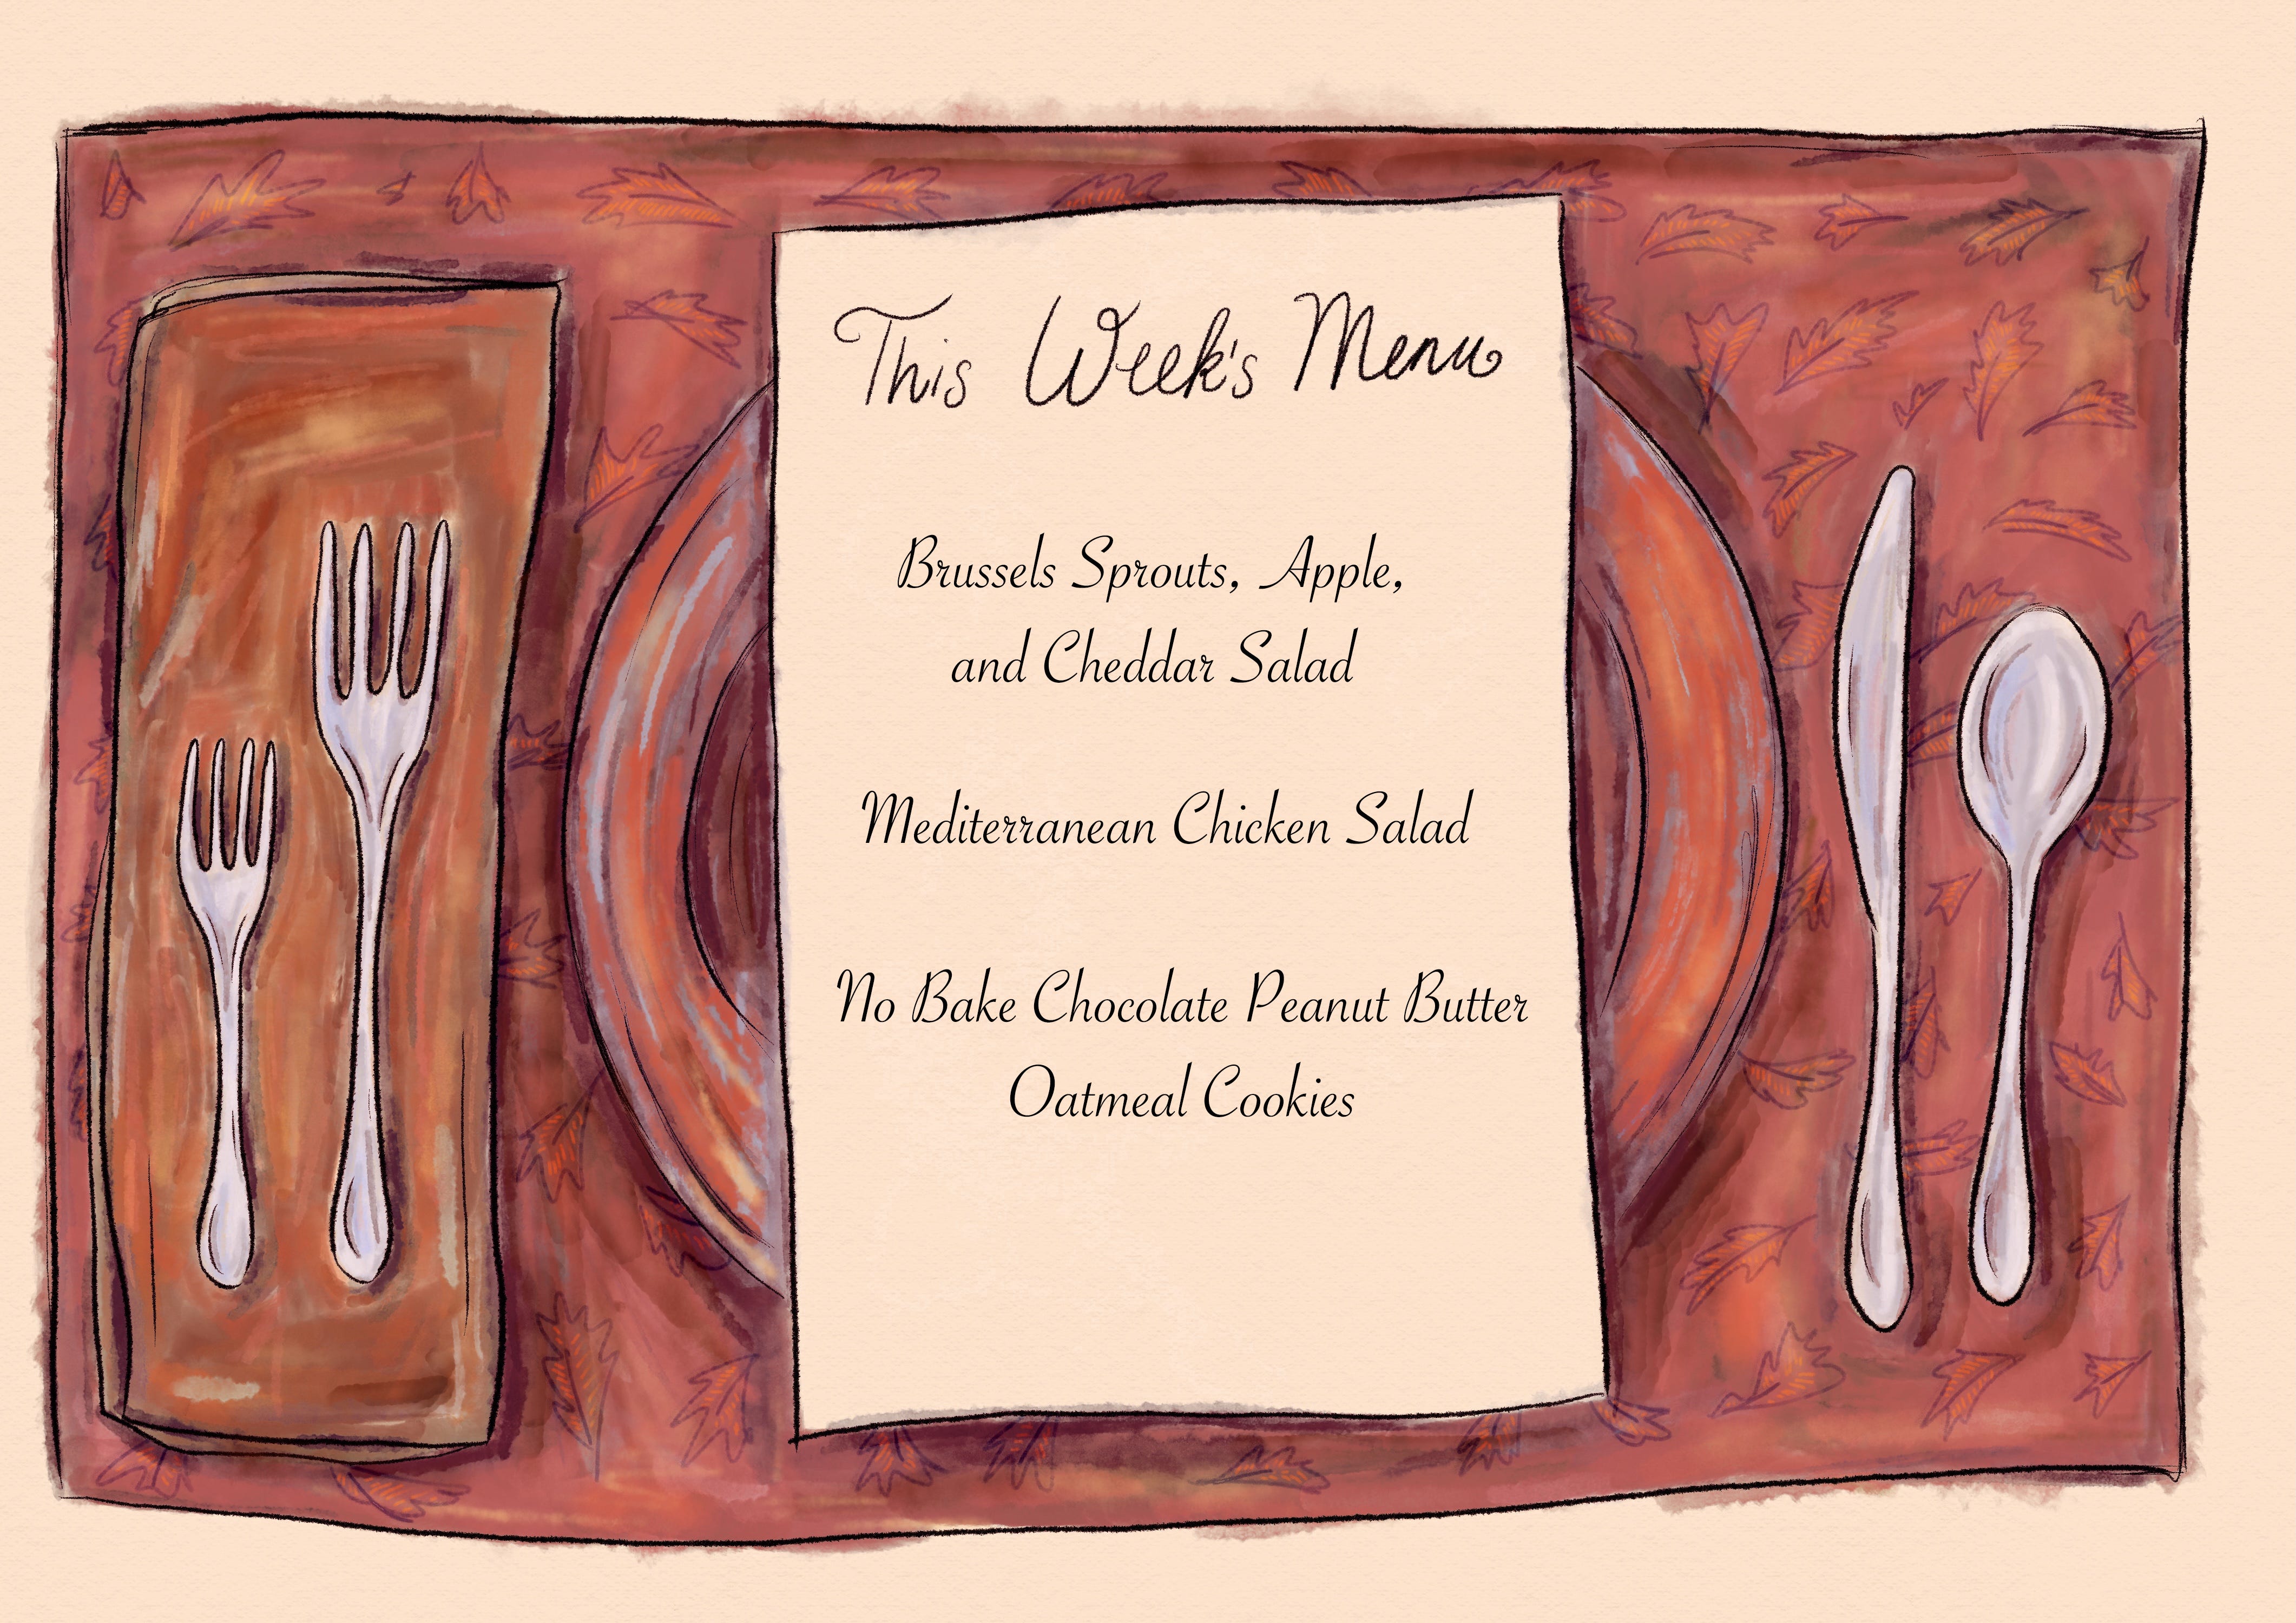 This Week's Menu
Brussels Sprouts, Apple,
and Cheddar Salad
Mediterranean Chicken Salad
No Bake Chocolate Peanut Butter
Oatmeal Cookies